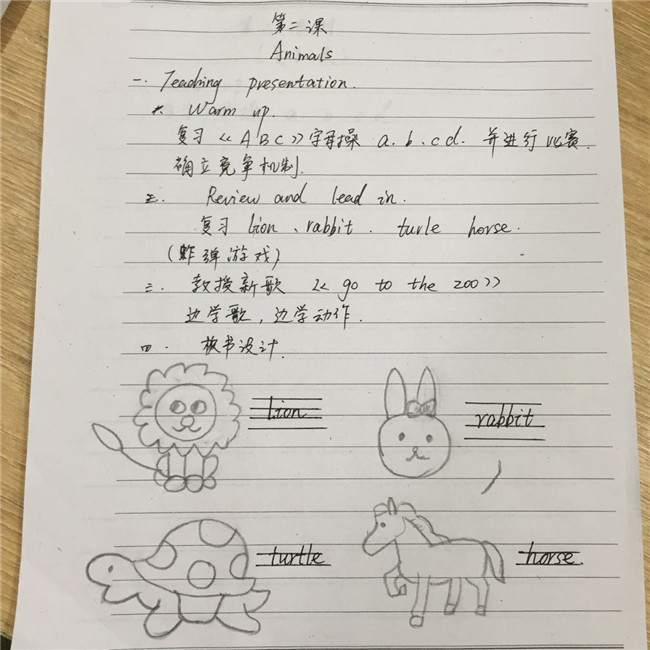 第二课
Animals
一. Teaching presentation.
*. Warm up.
复习《ABC》字母操 a. b. c d. 并进行比赛.
确立竞争机制.
二. Review and lead in.
复习 lion、rabbit. turle horse.
(炸弹游戏)
三. 教授新歌《go to the zoo》
边学歌,边学动作.
四. 板书设计.
lion
rabbit
turtle
horse.